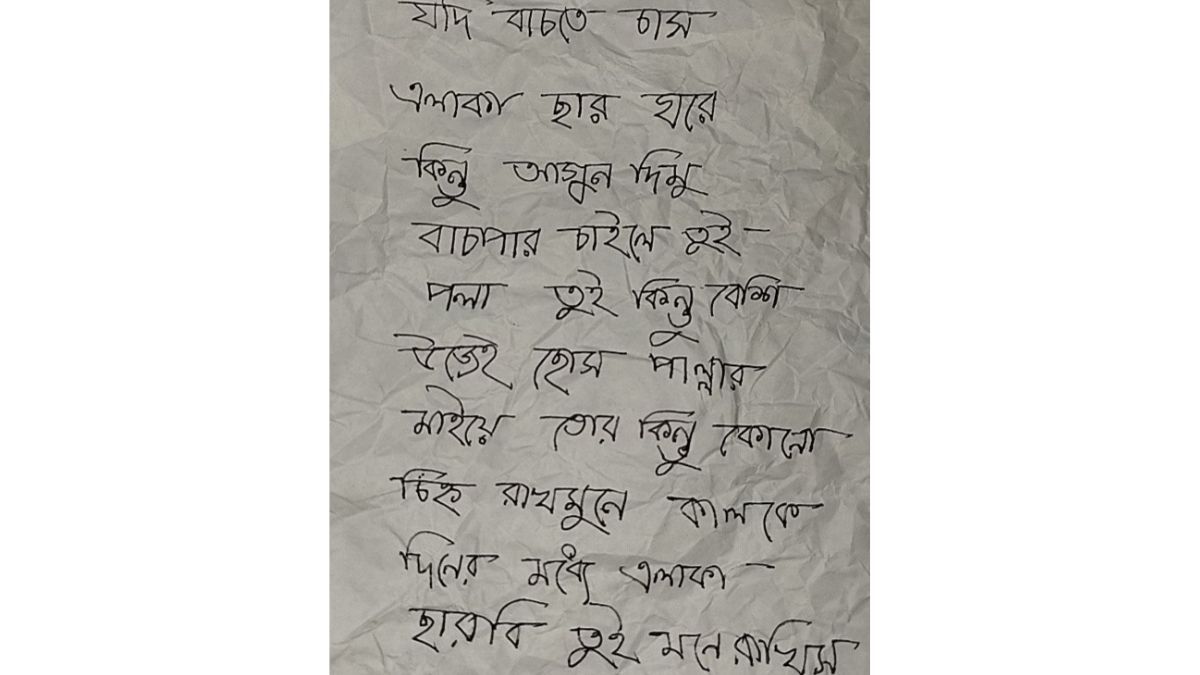 যদি বাচতে চাস
এলাকা ছার ঘরে
কিন্তু আগুন দিমু
বাচাপার চাইলে তুই-
পলা তুই কিন্তু বেশি
বড়েই হোস পাল্লার
মাইয়ে তোর কিন্তু কোনো
চিহ্ন রাখমুনে কালকে
দিনের মধ্যে এলাকা-
ছারবি তুই মনে রাখিস